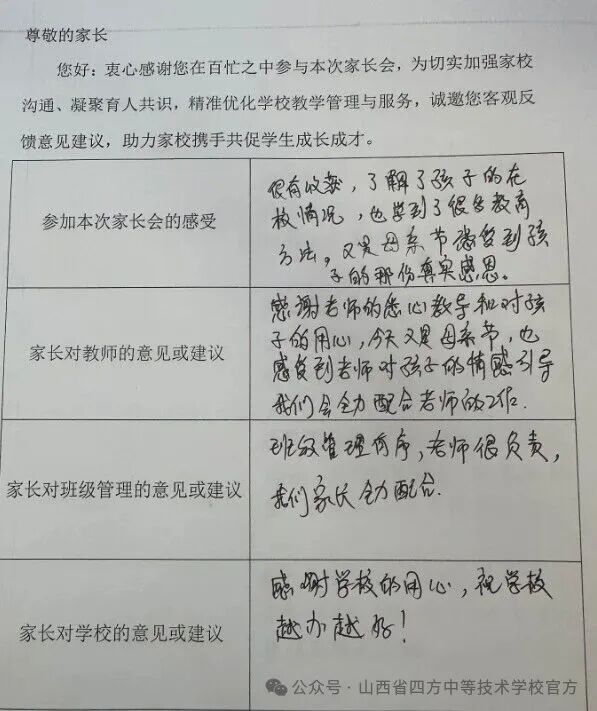 尊敬的家长
您好：衷心感谢您在百忙之中参与本次家长会，为切实加强家校
沟通、凝聚育人共识，精准优化学校教学管理与服务，诚邀您客观反
馈意见建议，助力家校携手共促学生成长成才。
参加本次家长会的感受
很有收获，了解了孩子的在
校情况，也学到了很多教育
方法，又是母亲节感受到孩
子的那份真实感恩。
家长对教师的意见或建议
感谢老师的悉心教导和对孩
子的用心，今天又是母亲节，也
感受到老师对孩子的情感引导
我们会全力配合老师的工作.
家长对班级管理的意见或建议
班级管理有序，老师很负责，
我们家长全力配合.
家长对学校的意见或建议
感谢学校的用心，祝学校
越办越好！
公众号·山西省四方中等技术学校官方